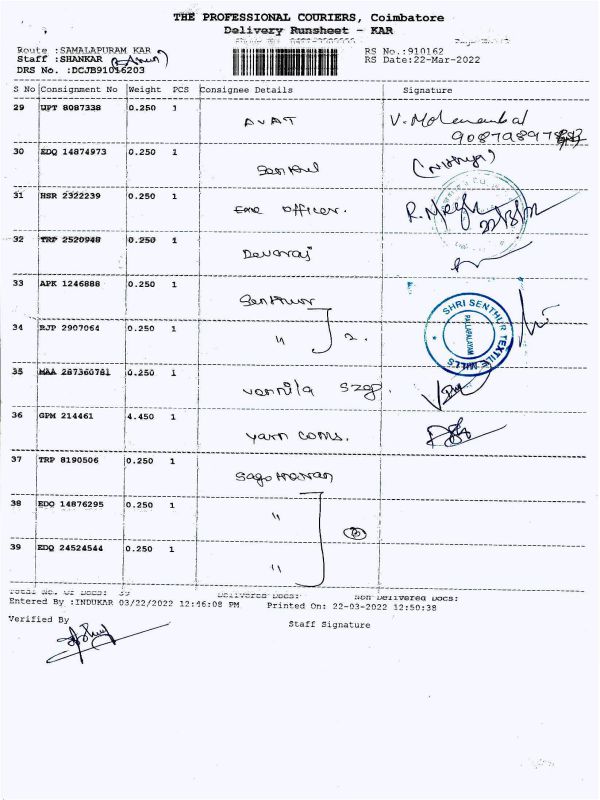 THE PROFESSIONAL COURIERS, Coimbatore
Delivery Runsheet - KAR
Route :SAMALAPURAM KAR RS No.:910162
Staff :SHANKAR RS Date:22-Mar-2022
DRS No. :DCJB91016203
S No Consignment No Weight PCS Consignee Details Signature
29 UPT 8087338 0.250 1
AVAT V.
30 EDQ 14874973 0.250 1
31 HSR 2322239 0.250 1
officer.
32 TRP 2520948 0.250 1
Devaraj
33 APK 1246888 0.250 1
Senthur
SHRI SENTHUR TEXTILE MILLS
PALLAPALAYAM
34 RJP 2907064 0.250 1
" 2.
35 MAA 287360781 0.250 1
vennila
36 GPM 214461 4.450 1
yarn coms.
37 TRP 8190506 0.250 1
38 EDQ 14876295 0.250 1
"
39 EDQ 24524544 0.250 1
"
Total No. Of Docs: 39 Delivered Docs: Non Delivered Docs:
Entered By :INDUKAR 03/22/2022 12:46:08 PM Printed On: 22-03-2022 12:50:38
Verified By
Staff Signature